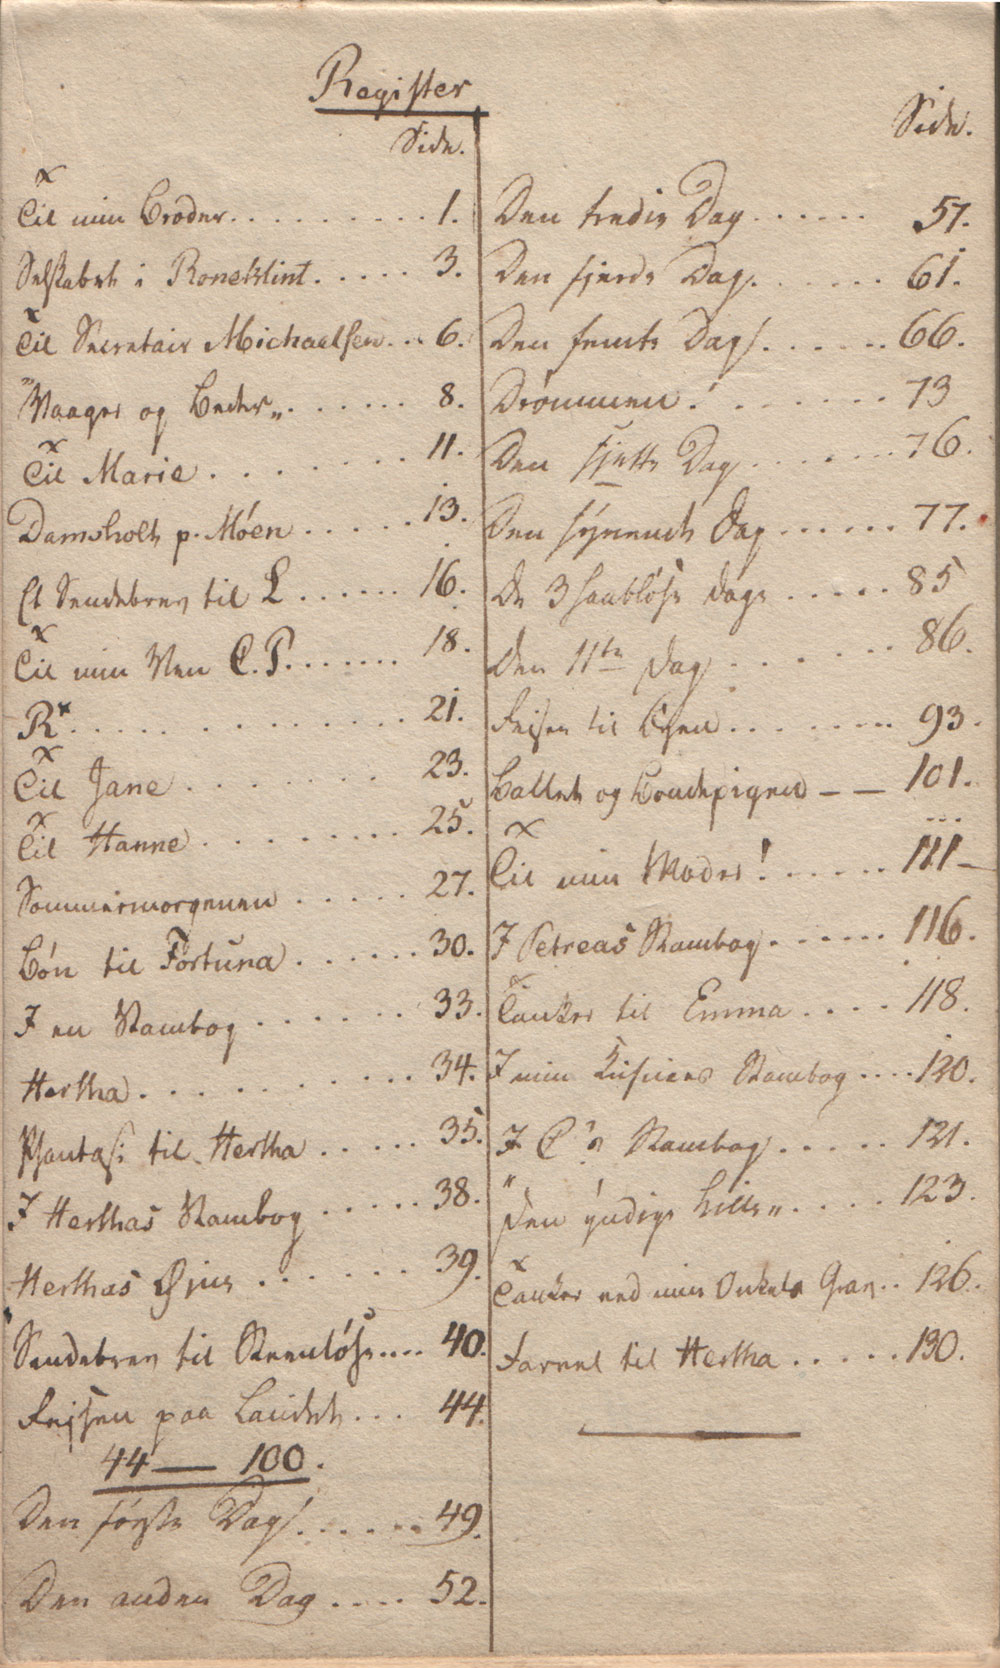 Register
Side.
x
Til min Broder . . . . . . . . . . 1.
Selskabet i Roneklint . . . . . 3.
x
Til Secretair Michaelsen . . . 6.
"Vaager og Beder„ . . . . . . . 8.
x
Til Marie . . . . . . . 11.
Damsholte p. Møen . . . . . 13.
Et Sendebrev til L . . . . . . 16.
x
Til min Ven C. P. . . . . . . 18.
R* . . . . . . . . . . . . 21.
x
Til Jane . . . . . . . 23.
x
Til Hanne . . . . . . . . 25.
Sommermorgenen . . . . . 27.
Bøn til Fortuna . . . . . . 30.
I en Stambog . . . . . . 33.
Hertha . . . . . . . . . . 34.
Phantasi til Hertha . . . . . 35.
I Herthas Stambog . . . . . 38.
Herthas Øjne . . . . . . 39.
Sendebrev til Steenløse . . . . 40.
Rejsen paa Landet . . . 44.
44 — 100.
Den første Dag . . . . . . 49.
Den anden Dag . . . . 52.
Side.
Den tredie Dag . . . . . . 57.
Den fjerde Dag . . . . . . . 61.
Den femte Dag . . . . . . 66.
Drømmen! . . . . . . . 73
Den sjette Dag . . . . . . . 76.
Den syvende Dag . . . . . . 77.
De 3 haabløse Dage . . . . . 85
Den 11te Dag . . . . . . 86.
Rejsen til Byen . . . . . . . 93.
Ballet og Bondepigen — — 101.
x
Til min Moder! . . . . . . 111 —
I Petreas Stambog . . . . . . 116.
x
Tanker til Emma . . . . 118.
I min Cusines Stambog . . . . 120.
I C's Stambog . . . . . 121.
"Den yndige Lille„ . . . . 123.
x
Tanker ved min Onkels Grav . . 126.
Farvel til Hertha . . . . . 130.